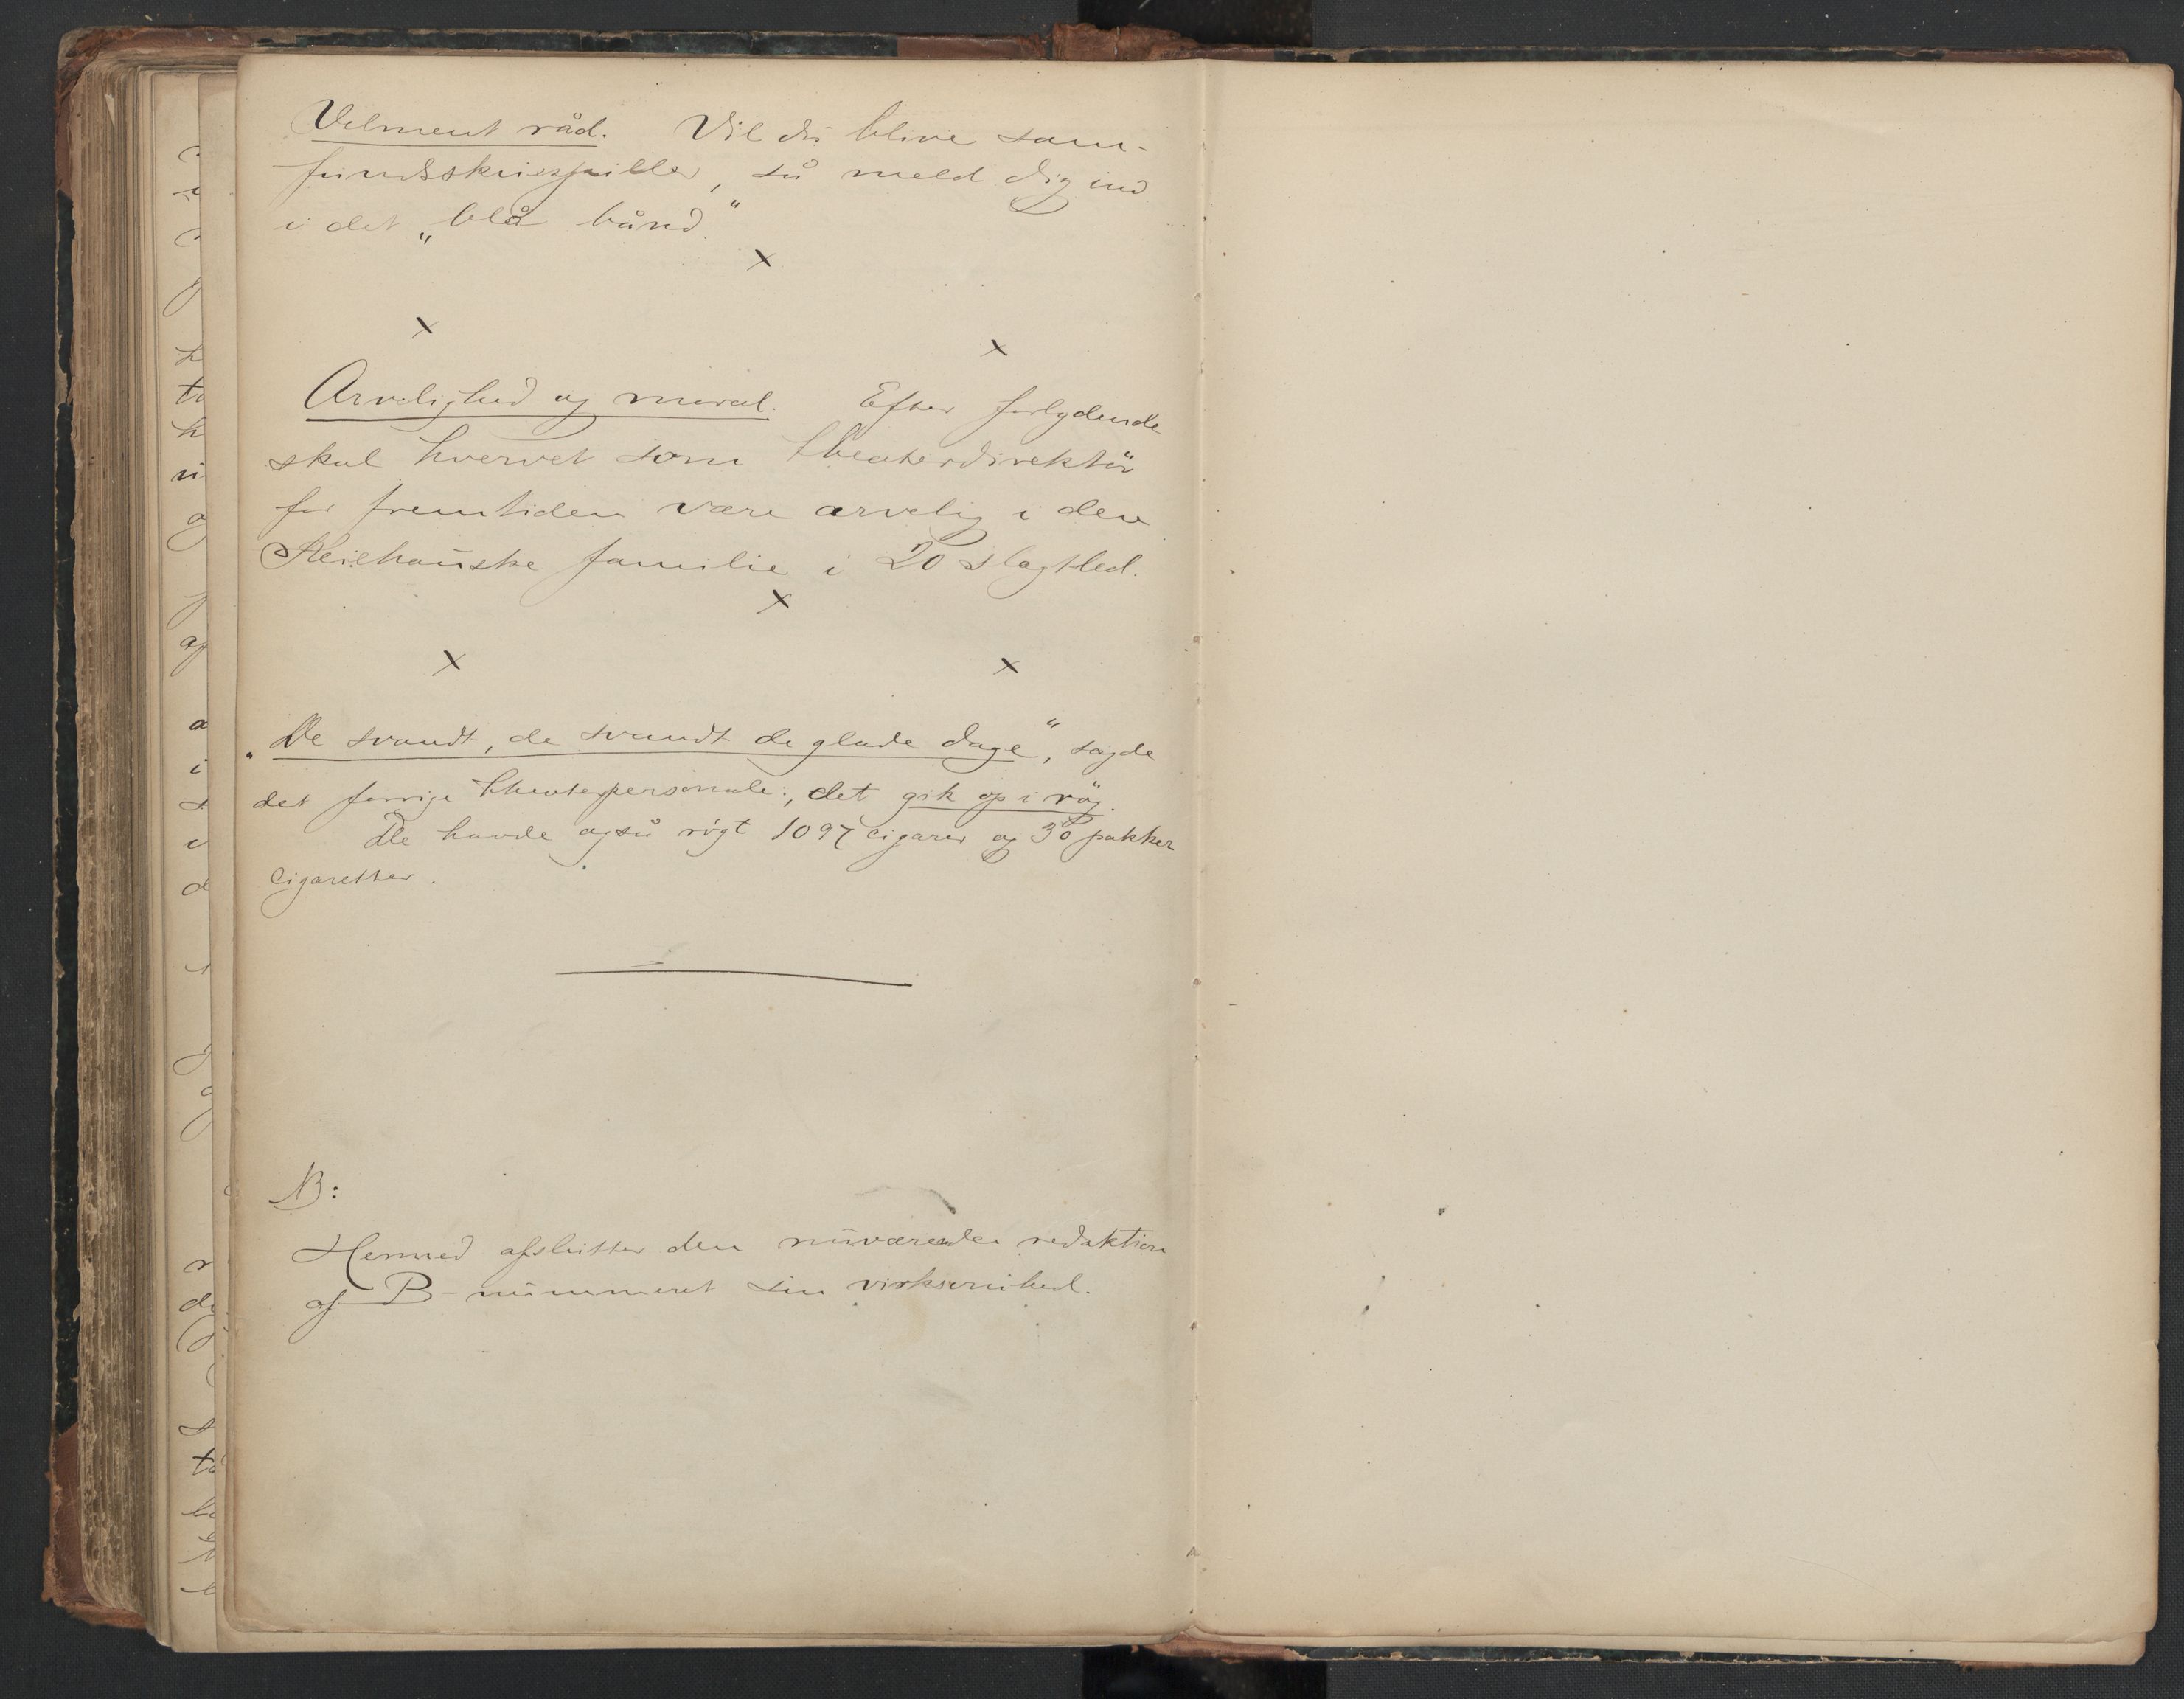 Velment råd. Vil du blive sam-
fundsskuespiller, så meld dig ind
i det „blå bånd."
x
x x
Arvelighed og moral. Efter forlydende
skal hvervet som theaterdirektör
for fremtiden være arvelig i den
familie i 20 slagtled.
x
x x
„De svandt, de svandt de glade dage", sagde
det forrige theaterpersonale., det gik op i røg.
De havde også røgt 1097 cigarer og 30 pakker
cigaretter.
NB:
Hermed afslutter den nuværende redaktion
af B-nummeret sin virksomhed.